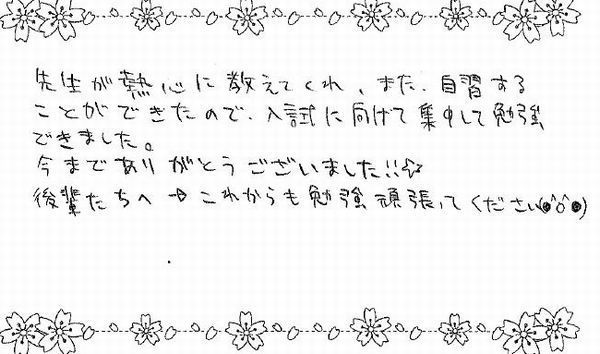 先生が熱心に教えてくれ、また、自習する
ことができたので、入試に向けて集中して勉強
できました。
今までありがとうございました!!☆
後輩たちへ → これからも勉強頑張ってください(●^o^●)